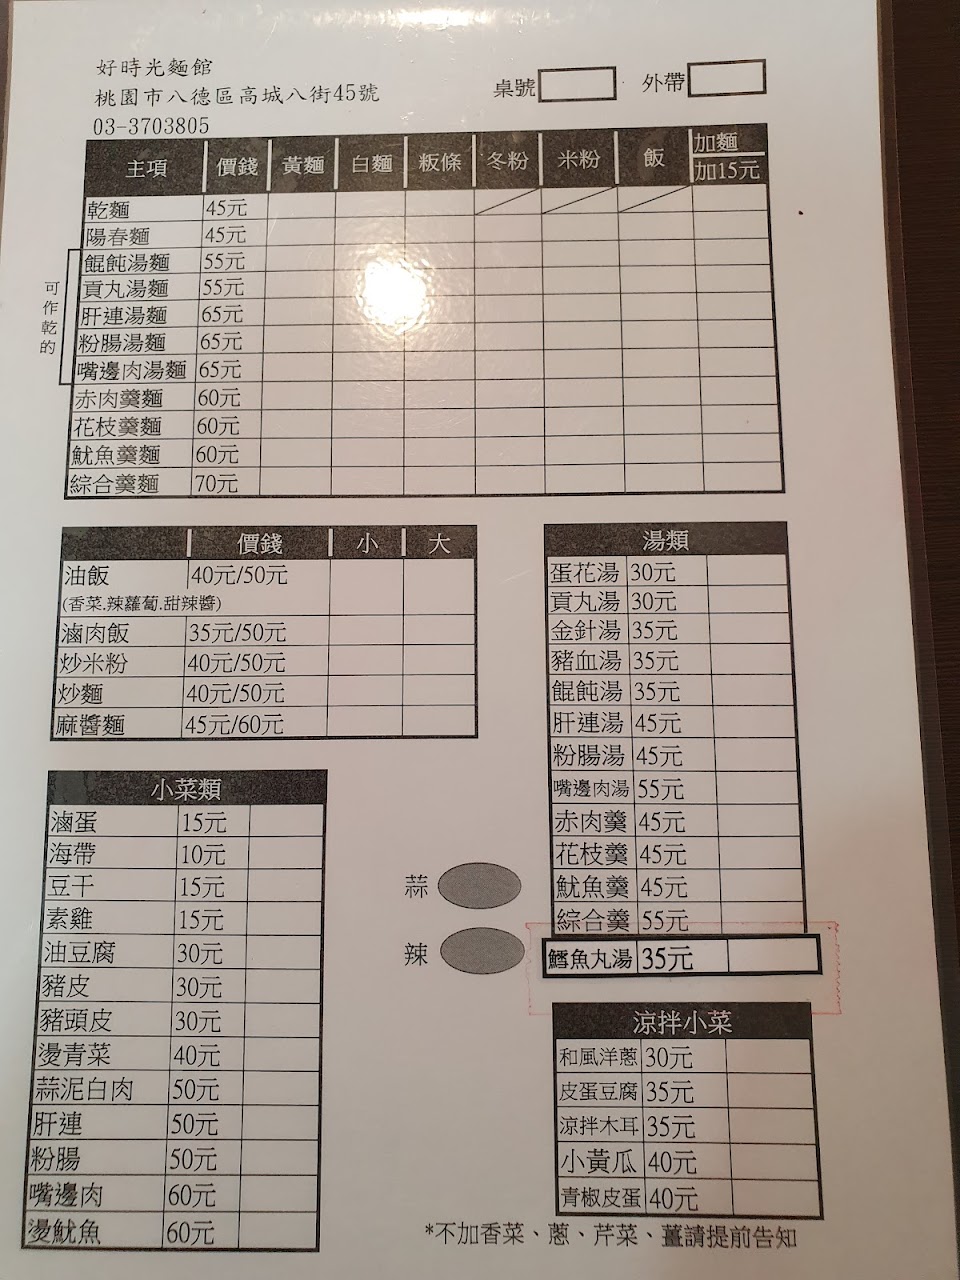 好時光麵館
桃園市八德區高城八街45號
03-3703805
桌號 外帶
主項 價錢 黃麵 白麵 粄條 冬粉 米粉 飯 加麵 加15元
乾麵 45元
陽春麵 45元
可作乾的
餛飩湯麵 55元
貢丸湯麵 55元
肝連湯麵 65元
粉腸湯麵 65元
嘴邊肉湯麵 65元
赤肉羹麵 60元
花枝羹麵 60元
魷魚羹麵 60元
綜合羹麵 70元
價錢 小 大
油飯 40元/50元
(香菜.辣蘿蔔.甜辣醬)
滷肉飯 35元/50元
炒米粉 40元/50元
炒麵 40元/50元
麻醬麵 45元/60元
湯類
蛋花湯 30元
貢丸湯 30元
金針湯 35元
豬血湯 35元
餛飩湯 35元
肝連湯 45元
粉腸湯 45元
嘴邊肉湯 55元
赤肉羹 45元
花枝羹 45元
魷魚羹 45元
綜合羹 55元
鱈魚丸湯 35元
小菜類
滷蛋 15元
海帶 10元
豆干 15元
素雞 15元
油豆腐 30元
豬皮 30元
豬頭皮 30元
燙青菜 40元
蒜泥白肉 50元
肝連 50元
粉腸 50元
嘴邊肉 60元
燙魷魚 60元
蒜
辣
涼拌小菜
和風洋蔥 30元
皮蛋豆腐 35元
涼拌木耳 35元
小黃瓜 40元
青椒皮蛋 40元
*不加香菜、蔥、芹菜、薑請提前告知